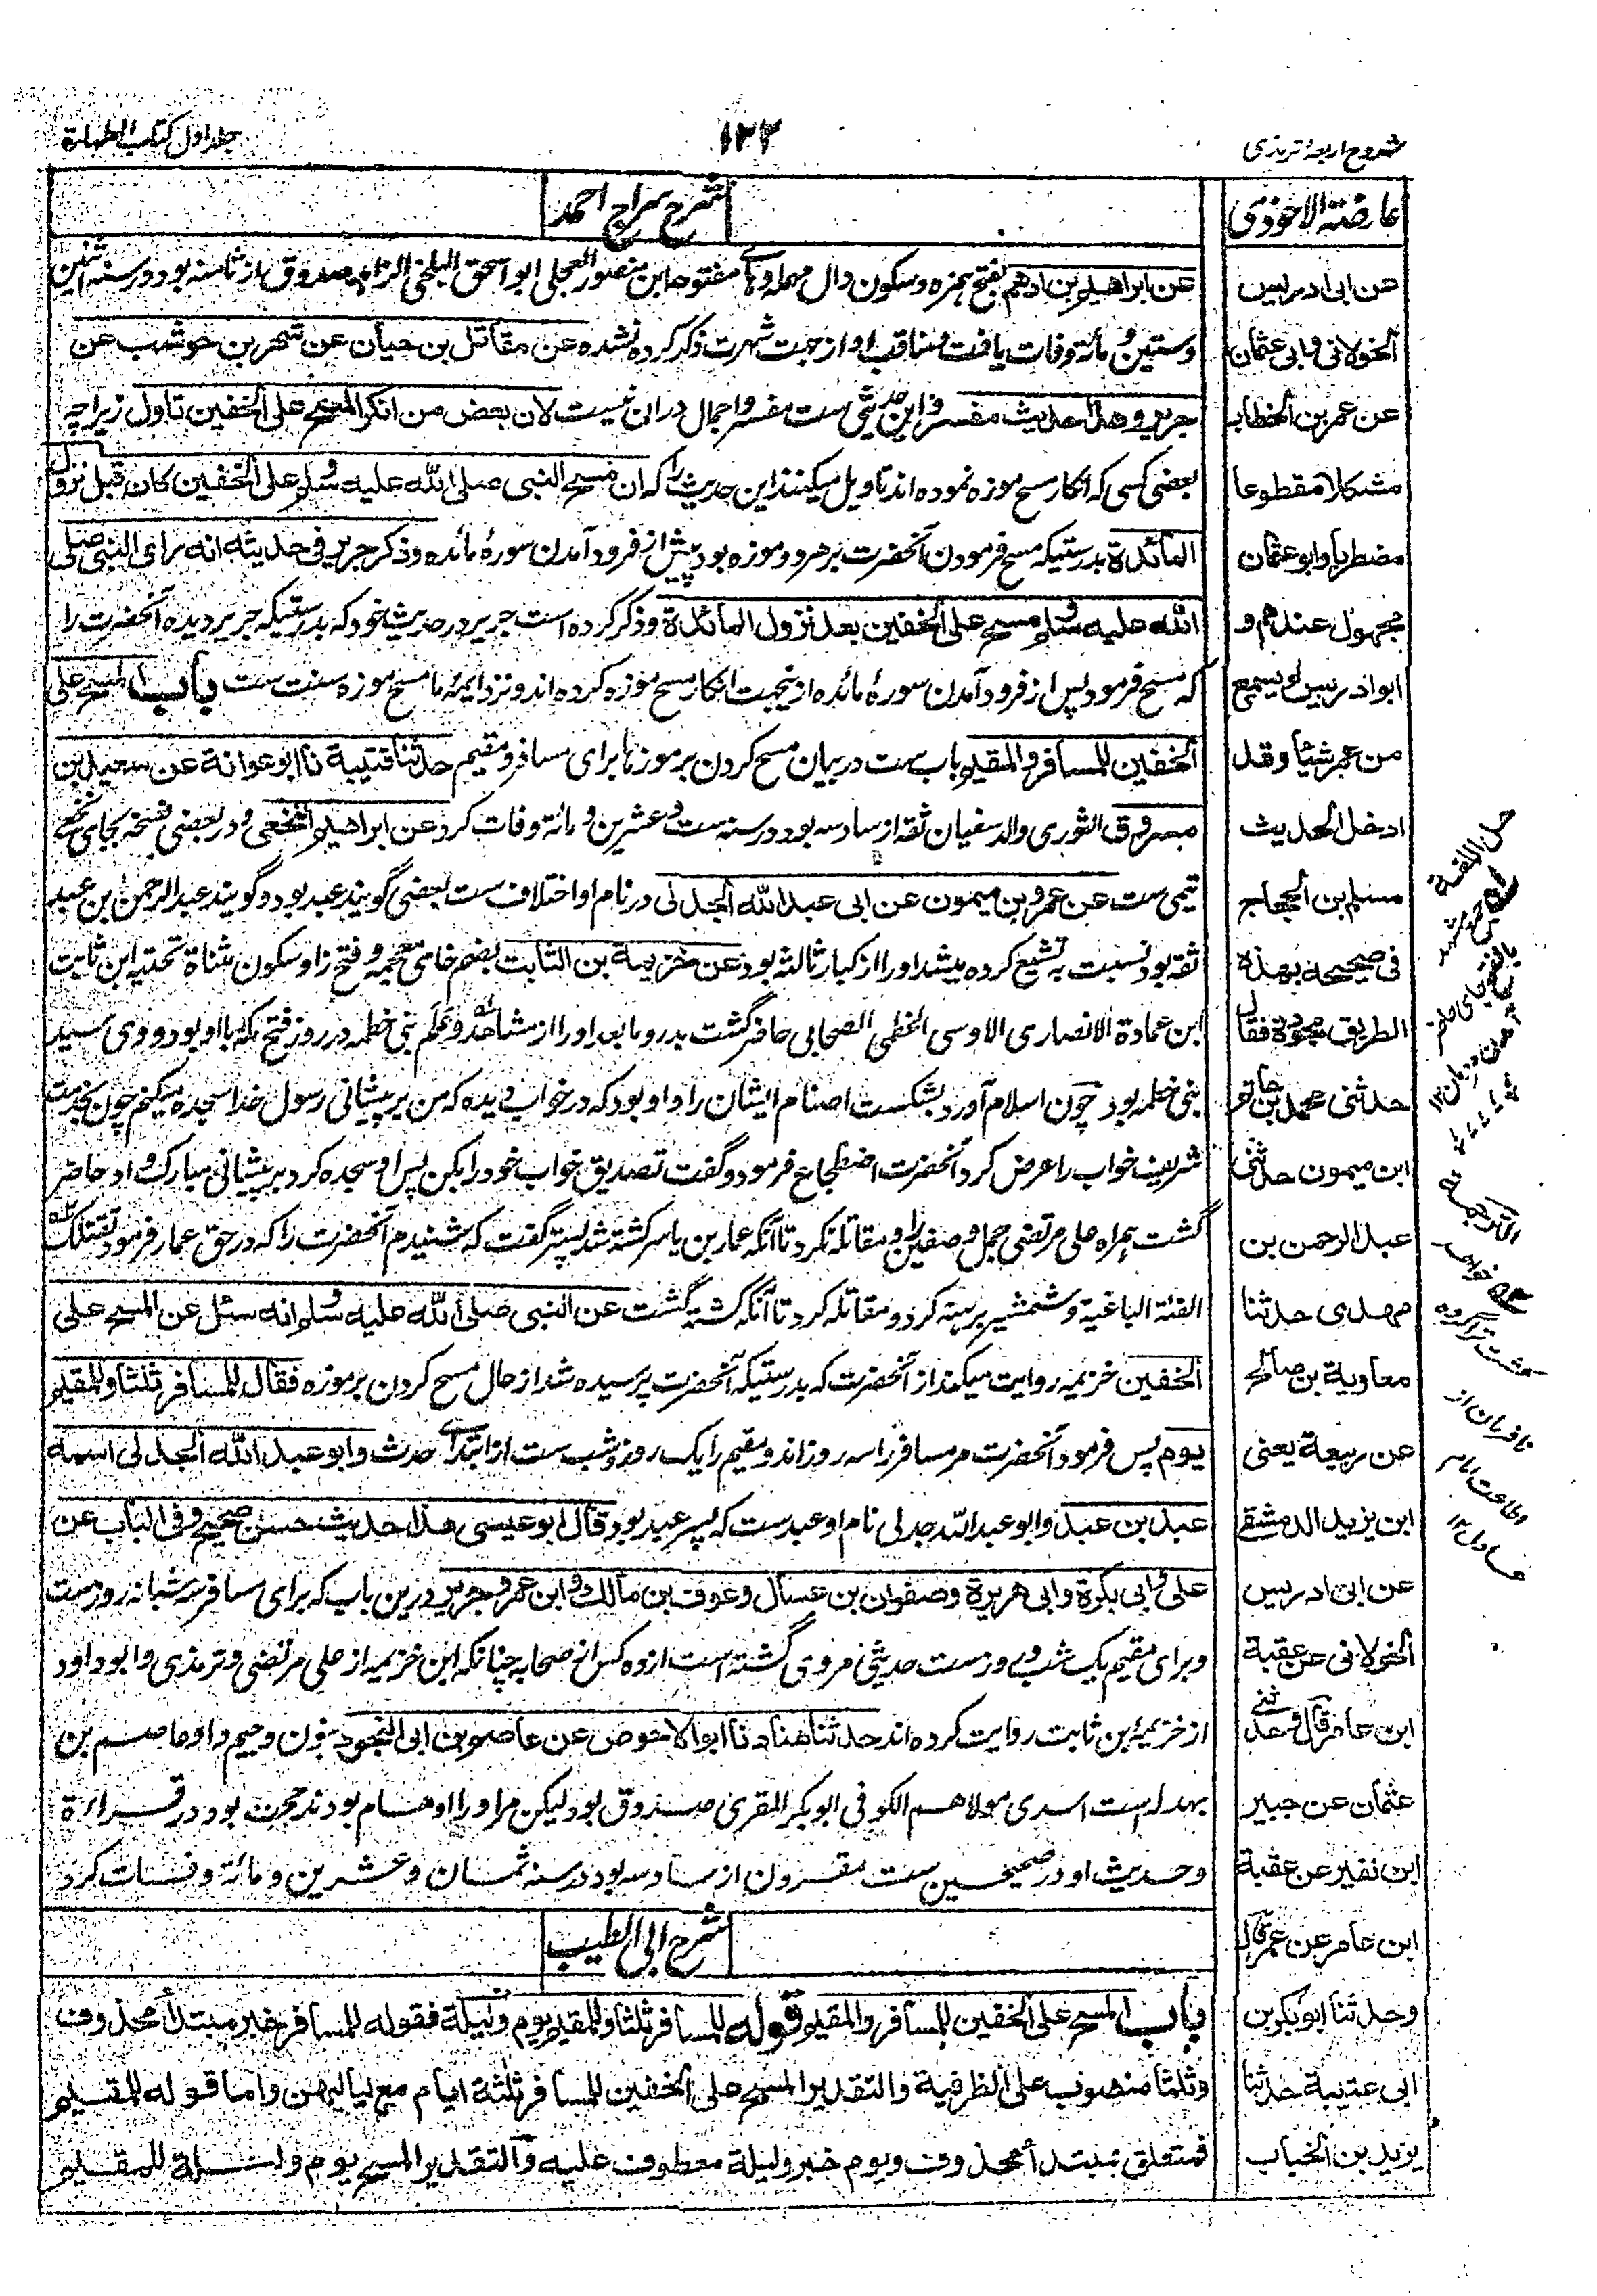 شروح اربعهٔ ترمذی
۱۳۲
جلد اول کتاب الطهارة
عارضة الاحوذی
عن ابی ادریس
الخولانی وابی عثمان
عن عمر بن الخطاب
مشکلا مقطوعا
مضطربا وابو عثمان
مجهول عندهم و
ابو ادریس لم یسمع
من عمر شیئا وقد
ادخل الحدیث
مسلم بن الحجاج
فی صحیحه بهذه
الطریق مجودة فقال
حدثنی محمد بن حاتم
ابن میمون حدثنی
عبد الرحمن بن
مهدی حدثنا
معاویة بن صالح
عن ربیعة یعنی
ابن یزید الدمشقی
عن ابی ادریس
الخولانی عن عقبة
ابن عامر قال وحدثنی
عثمان عن جبیر
ابن نفیر عن عقبة
ابن عامر عن عمر قال
وحدثنا ابو بکر بن
ابی عتیبة حدثنا
یزید بن الحباب
شرح سراج احمد
عن ابراهیم بن ادهم بفتح همزه وسکون دال مهمله وهاے مفتوحه ابن منصور العجلی ابو اسحق البلخی الزاهد صدوق از ثامنه بود در سنه اثنین
وستین ومأته وفات یافت مناقب او از جهت شهرت ذکر کرده نشده عن مقاتل بن حیان عن شهر بن حوشب عن
جریر وهذا حدیث مفسر واین حدیثی ست مفسر واجمال دران نیست لان بعض من انکر المسح علی الخفین تاول زیراچه
بعضی کسی که انکار مسح موزه نموده اند تاویل میکنند این حدیث را که ان مسح النبی صلی الله علیه وسلم علی الخفین کان قبل نزول
المائدة بدرستیکه مسح فرمودن آنحضرت بر هر دو موزه بود پیش از فرود آمدن سورهٔ مائده وذکر جریر فی حدیثه انه رای النبی صلی
الله علیه وسلم مسح علی الخفین بعد نزول المائدة وذکر کرده است جریر در حدیث خود که بدرستیکه جریر دیده آنحضرت را
که مسح فرمود پس از فرود آمدن سورهٔ مائده ازینجهت انکار مسح موزه کرده اند ونزد ایمهٔ ما مسح موزه سنت ست باب المسح علی
الخفین للمسافر والمقیم باب ست در بیان مسح کردن بر موزها برای مسافر ومقیم حدثنا قتیبة نا ابو عوانة عن سعید بن
مسروق الثوری والد سفیان ثقه از سادسه بود در سنه ست وعشرین ومائة وفات کرد عن ابراهیم النخعی ودر بعضی نسخه بجای نخعی
تیمی ست عن عمرو بن میمون عن ابی عبد الله الجدلی در نام او اختلاف ست بعضی گویند عبد بود وگویند عبد الرحمن بن عبد
ثقه بود نسبت به تشیع کرده میشد او را از کبار ثالثه بود عن خزیمة بن الثابت بضم خای معجمه وفتح زا وسکون مثناة تحتیه ابن ثابت
ابن عمادة الانصاری الاوسی الخطمی الصحابی حاضر گشت بدر وما بعد او را از مشاهد وعلم بنی خطمه در روز فتح مکه با او بود ووی سید
بنی خطمه بود چون اسلام آورد بشکست اصنام ایشان را واو بود که در خواب دیده که من بر پیشانی رسول خدا سجده میکنم چون بخدمت
شریف خواب را عرض کرد آنحضرت اضطجاع فرمود وگفت تصدیق خواب خود را بکن پس او سجده کرد بر پیشانی مبارک واو حاضر
گشت همراه علی مرتضی جمل وصفین را ومقاتله نکرد تا آنکه عمار بن یاسر کشته شد پستر گفت که شنیدم آنحضرت را که در حق عمار فرمود تقتلک
الفئة الباغیة وشمشیر برهنه کرد ومقاتله کرد تا آنکه کشته گشت عن النبی صلی الله علیه وسلم انه سئل عن المسح علی
الخفین خزیمه روایت میکند از آنحضرت که بدرستیکه آنحضرت پرسیده شد از حال مسح کردن بر موزه فقال للمسافر ثلثا وللمقیم
یوم پس فرمود آنحضرت مر مسافر را سه روز اند ومقیم را یک روز وشب ست از ابتدای حدث وابو عبد الله الجدلی اسمه
عبد بن عبد وابو عبد الله جدلی نام او عبد ست که پسر عبد بود قال ابو عیسی هذا حدیث حسن صحیح وفی الباب عن
علی وابی بکرة وابی هریرة وصفوان بن عسال وعوف بن مالک وابن عمر وجریر درین باب که برای مسافر سه شبانه روز ست
وبرای مقیم یک شب وروز ست حدیثی مروی گشته است از ده کس از صحابه چنانکه ابن خزیمه از علی مرتضی وترمذی وابو داود
از خزیمة بن ثابت روایت کرده اند حدثنا هناد نا ابو الاحوص عن عاصم بن ابی النجود بنون وجیم واو عاصم بن
بهدله است اسدی مولاهم الکوفی ابو بکر المقری صدوق بود لیکن مر او را اوهام بودند حجت بود در قراءة
وحدیث او در صحیحین ست مقرون از سادسه بود در سنه ثمان وعشرین ومائة وفات کرد
شرح ابی الطیب
باب المسح علی الخفین للمسافر والمقیم قوله للمسافر ثلثا وللمقیم یوم ولیلة فقوله للمسافر خبر مبتدأ محذوف
وثلثا منصوب علی الظرفیة والتقدیر المسح علی الخفین للمسافر ثلثة ایام مع لیالیهن واما قوله للمقیم
فمتعلق بمبتدأ محذوف ویوم خبر ولیلة معطوف علیه والتقدیر المسح یوم ولیلة للمقیم
حل اللغة